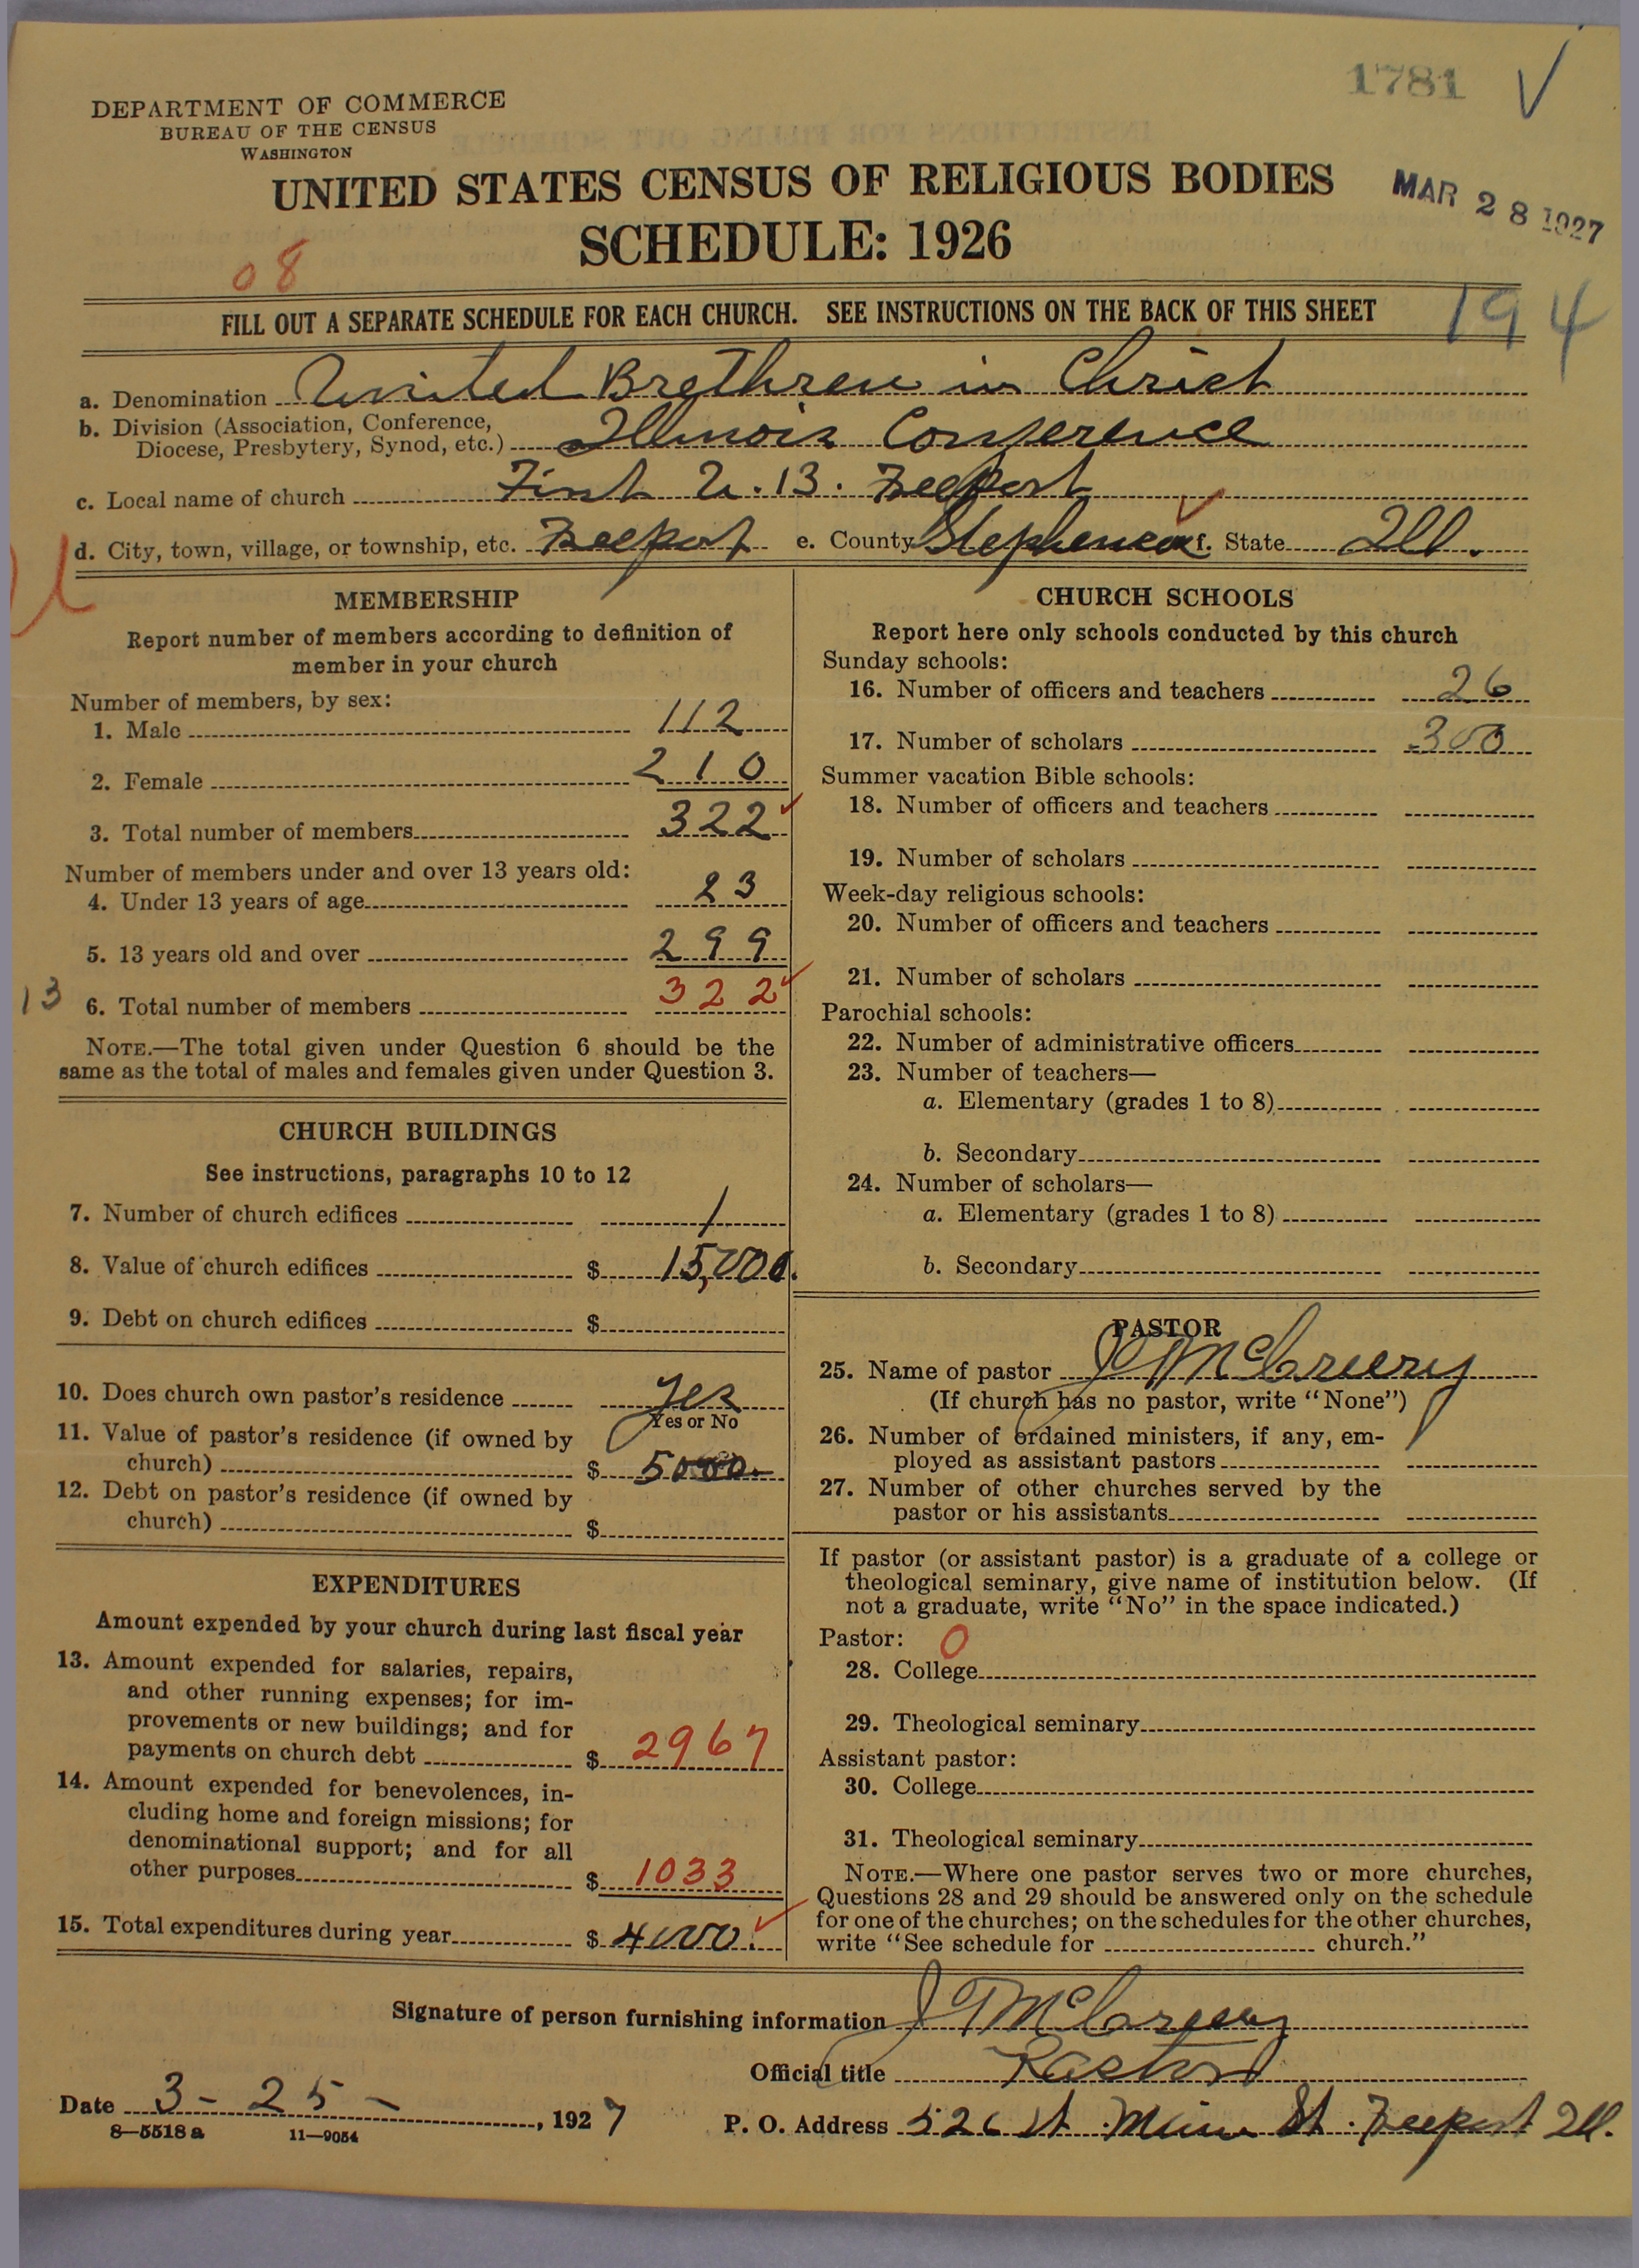 1781 √
DEPARTMENT OF COMMERCE
BUREAU OF THE CENSUS
WASHINGTON
UNITED STATES CENSUS OF RELIGIOUS BODIES
MAR 28 1927
SCHEDULE: 1926
08
FILL OUT A SEPARATE SCHEDULE FOR EACH CHURCH. SEE INSTRUCTIONS ON THE BACK OF THIS SHEET
194
a. Denomination United Brethren in Christ
b. Division (Association, Conference,
Diocese, Presbytery, Synod, etc.) Illinois Conference
c. Local name of church First U.B. Freeport
d. City, town, village, or township, etc. Freeport e. County Stephenson f. State Ill.
MEMBERSHIP
Report number of members according to definition of
member in your church
Number of members, by sex:
1. Male 112
2. Female 210
3. Total number of members 322
Number of members under and over 13 years old:
4. Under 13 years of age 23
5. 13 years old and over 299
13
6. Total number of members 322
NOTE.—The total given under Question 6 should be the
same as the total of males and females given under Question 3.
CHURCH BUILDINGS
See instructions, paragraphs 10 to 12
7. Number of church edifices 1
8. Value of church edifices $ 15,000.
9. Debt on church edifices $
10. Does church own pastor's residence Yes
Yes or No
11. Value of pastor's residence (if owned by
church) $ 5000.
12. Debt on pastor's residence (if owned by
church) $
EXPENDITURES
Amount expended by your church during last fiscal year
13. Amount expended for salaries, repairs,
and other running expenses; for im-
provements or new buildings; and for
payments on church debt $ 2967
14. Amount expended for benevolences, in-
cluding home and foreign missions; for
denominational support; and for all
other purposes $ 1033
15. Total expenditures during year $ 4000.
CHURCH SCHOOLS
Report here only schools conducted by this church
Sunday schools:
16. Number of officers and teachers 26
17. Number of scholars 300
Summer vacation Bible schools:
18. Number of officers and teachers
19. Number of scholars
Week-day religious schools:
20. Number of officers and teachers
21. Number of scholars
Parochial schools:
22. Number of administrative officers
23. Number of teachers—
a. Elementary (grades 1 to 8)
b. Secondary
24. Number of scholars—
a. Elementary (grades 1 to 8)
b. Secondary
PASTOR
25. Name of pastor J T McCreery
(If church has no pastor, write "None")
26. Number of ordained ministers, if any, em-
ployed as assistant pastors
27. Number of other churches served by the
pastor or his assistants
If pastor (or assistant pastor) is a graduate of a college or
theological seminary, give name of institution below. (If
not a graduate, write "No" in the space indicated.)
Pastor: 0
28. College
29. Theological seminary
Assistant pastor:
30. College
31. Theological seminary
NOTE.—Where one pastor serves two or more churches,
Questions 28 and 29 should be answered only on the schedule
for one of the churches; on the schedules for the other churches,
write "See schedule for church."
Signature of person furnishing information J T McCreery
Official title Pastor
Date 3-25-, 1927
P. O. Address 526 St. Main St. Freeport Ill.
8—5518a 11—9054